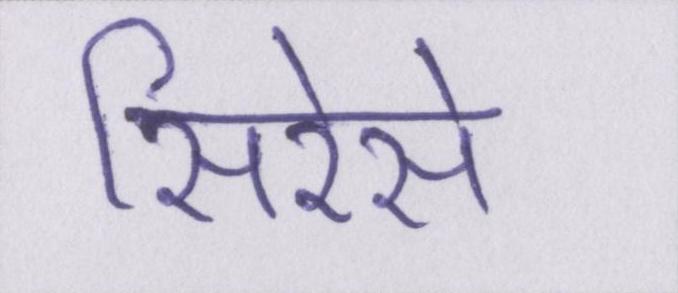 सिरेसे